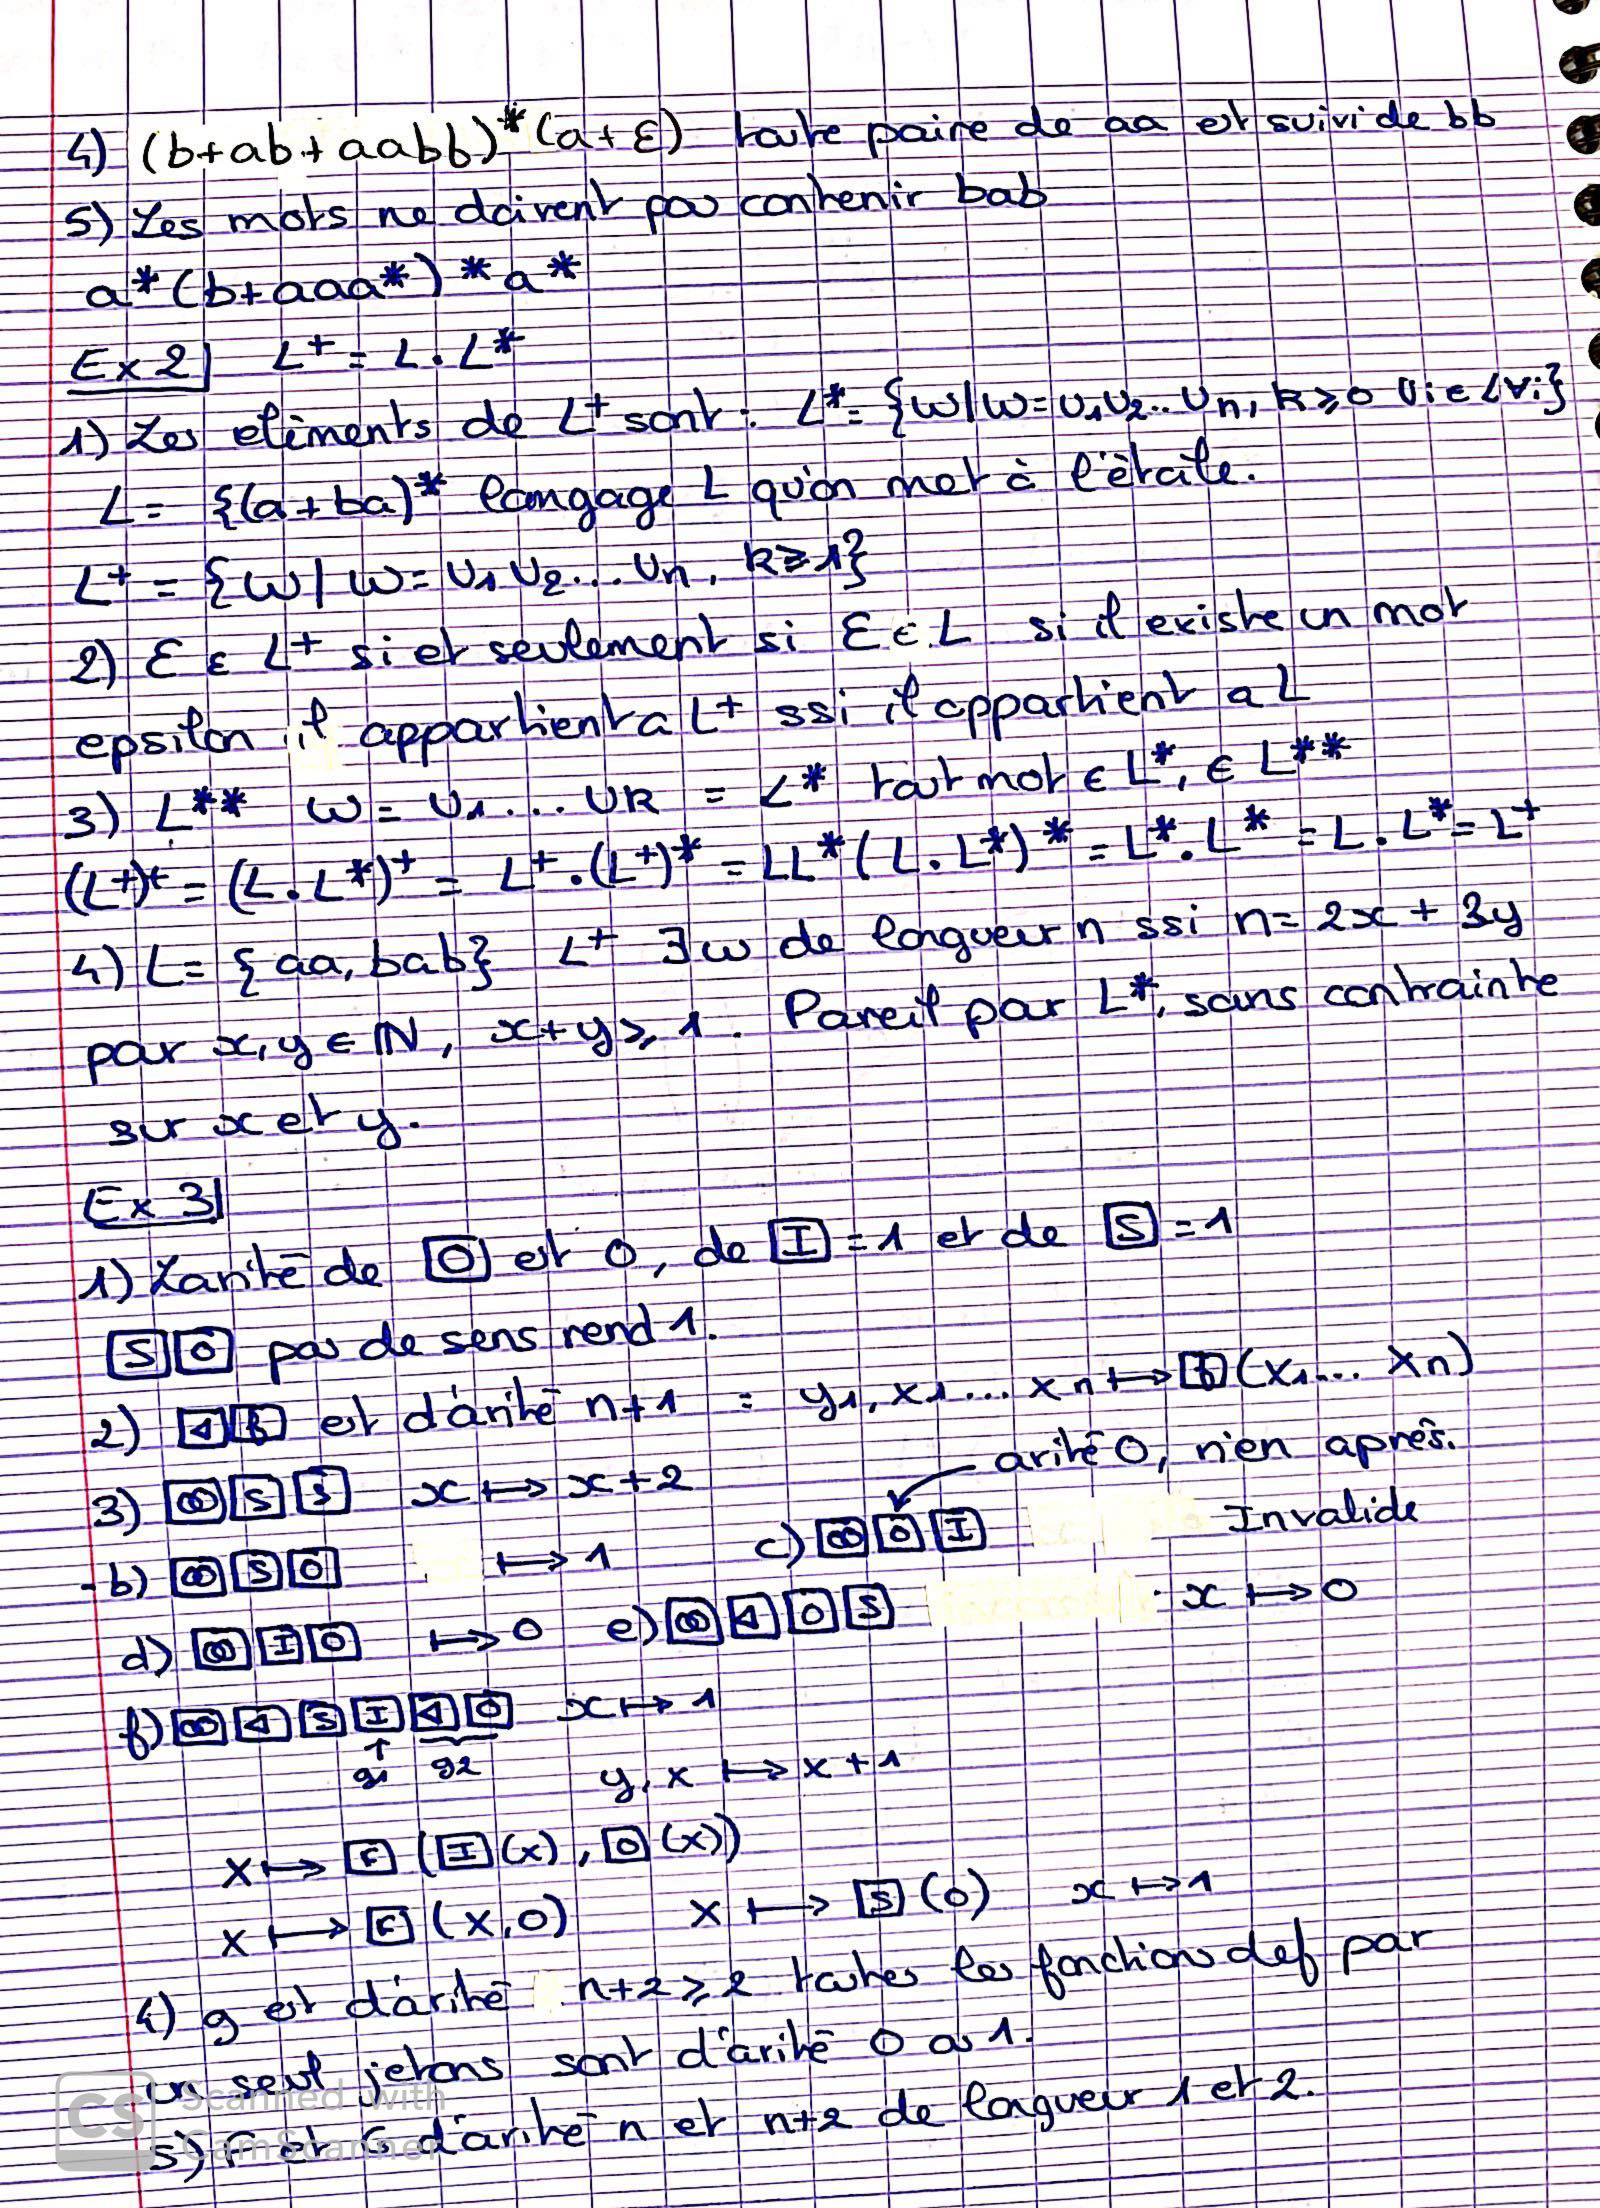 4) (b+ab+aabb)*(a+ε) toute paire de aa est suivi de bb
5) Les mots ne doivent pas contenir bab
a*(b+aaa*)*a*
Ex 2| L⁺ = L.L*
1) Les eléments de L⁺ sont : L* = {w|w=υ₁υ₂..υn, k≥0 υi∈L∀i}
L = {(a+ba)* langage L qu'on met à l'étoile.
L⁺ = {w | w = υ₁υ₂...υn, k≥1}
2) ε ∈ L⁺ si et seulement si ε∈L si il existe un mot
epsilon il appartient a L⁺ ssi il appartient a L
3) L** w = υ₁....υk = L* tout mot ∈ L*, ∈ L**
(L⁺)⁺ = (L.L*)⁺ = L⁺.(L⁺)* = LL*(L.L*)* = L*.L* = L.L* = L⁺
4) L = {aa, bab} L⁺ ∃w de longueur n ssi n = 2x + 3y
pour x,y ∈ ℕ, x+y ≥ 1. Pareil pour L*, sans contrainte
sur x et y.
Ex 3|
1) L'arité de [O] est 0, de [I] = 1 et de [S] = 1
[S][O] pas de sens rend 1.
2) [◁][f] est d'arité n+1 = y₁,x₁...xn ↦ [f](x₁... xn)
arité 0, rien après.
3) [∞][S][S] x ↦ x+2
-b) [∞][S][O] ↦ 1 c) [∞][O][I] Invalide
d) [∞][I][O] ↦ 0 e) [∞][◁][O][S] x ↦ 0
f) [∞][◁][S][I][◁][O] x ↦ 1
↑
g1 g2 y, x ↦ x+1
x ↦ [F]([I](x), [O](x))
x ↦ [F](x,0) x ↦ [S](0) x ↦ 1
4) g est d'arité n+2 ≥ 2 toutes les fonctions def par
un seul jetons sont d'arité 0 ou 1.
5) F et G d'arité n et n+2 de longueur 1 et 2.
CS Scanned with
CamScanner